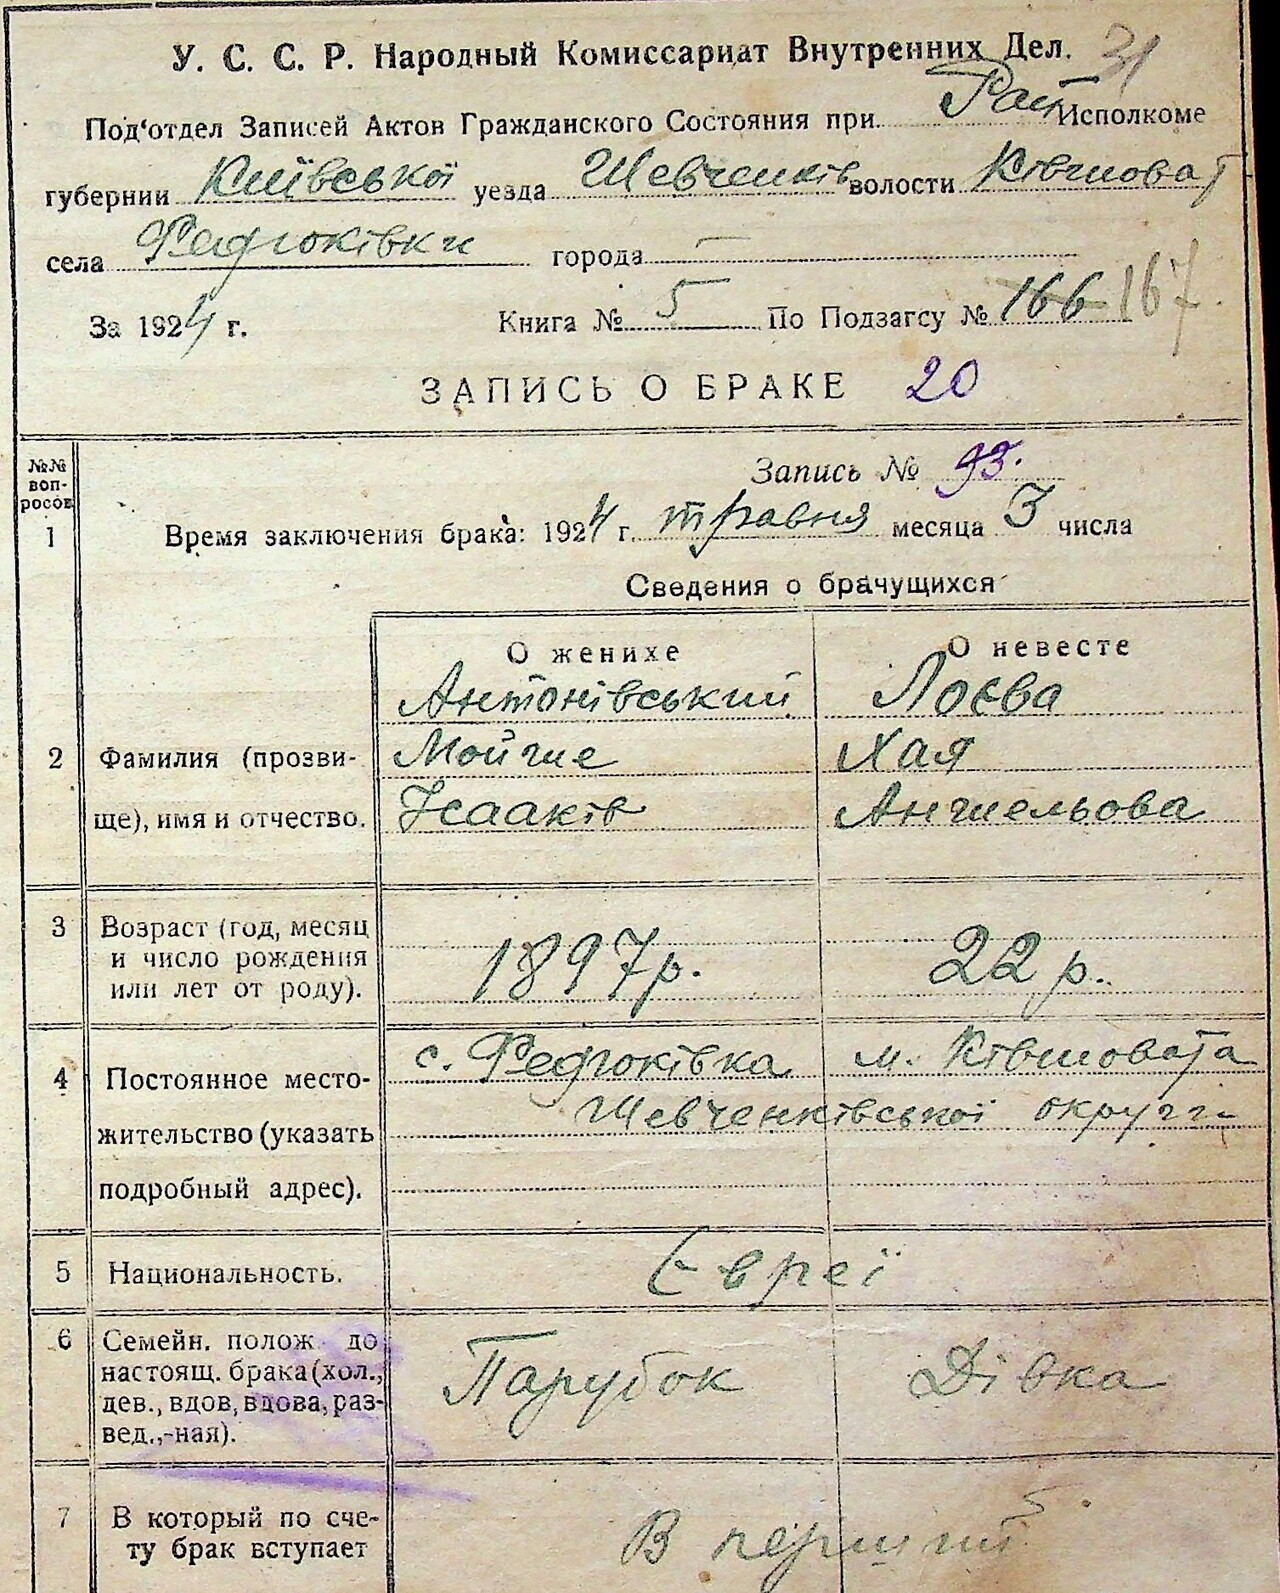 У. С. С. Р. Народный Комиссариат Внутренних Дел. 31
Под'отдел Записей Актов Гражданского Состояния при Рай Исполкоме
губернии Київської уезда Шевченків волости Ківшоват
села Федюківки города —
За 1924 г. Книга № 5 По Подзагсу № 166 167
ЗАПИСЬ О БРАКЕ 20
№№ вопросов
Запись № 93.
1 Время заключения брака: 1924 г. травня месяца 3 числа
Сведения о брачущихся
О женихе О невесте
Антонівський Лоєва
2 Фамилия (прозви- Мойше Хая
ще), имя и отчество. Ісааків Аншельова
3 Возраст (год, месяц
и число рождения 1897 р. 22 р.
или лет от роду).
с. Федюківка м. Ківшовата
4 Постоянное место-
Шевченківської округи
жительство (указать
подробный адрес).
5 Национальность. Євреї
6 Семейн. полож. до
настоящ. брака (хол., Парубок Дівка
дев., вдов, вдова, раз-
вед.,-ная).
7 В который по сче-
ту брак вступает В перший